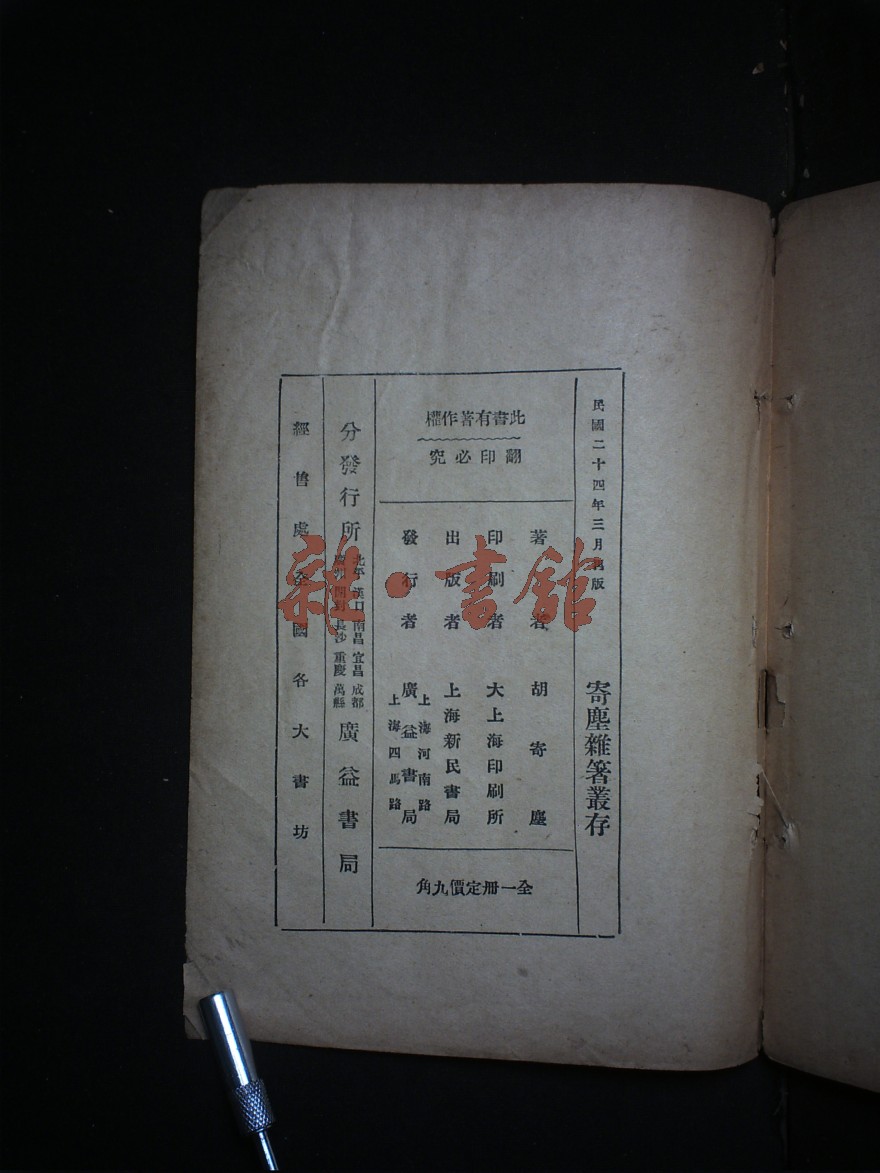 民國二十四年三月版
寄塵雜箸叢存
此書有著作權
翻印必究
著者 胡寄塵
印刷者 大上海印刷所
出版者 上海新民書局
發行者 上海河南路
廣益書局
上海四馬路
全一冊定價九角
分發行所
北平 漢口 南昌 宜昌 成都
開封 長沙 重慶 萬縣
廣益書局
經售處全國各大書坊
雜·書館